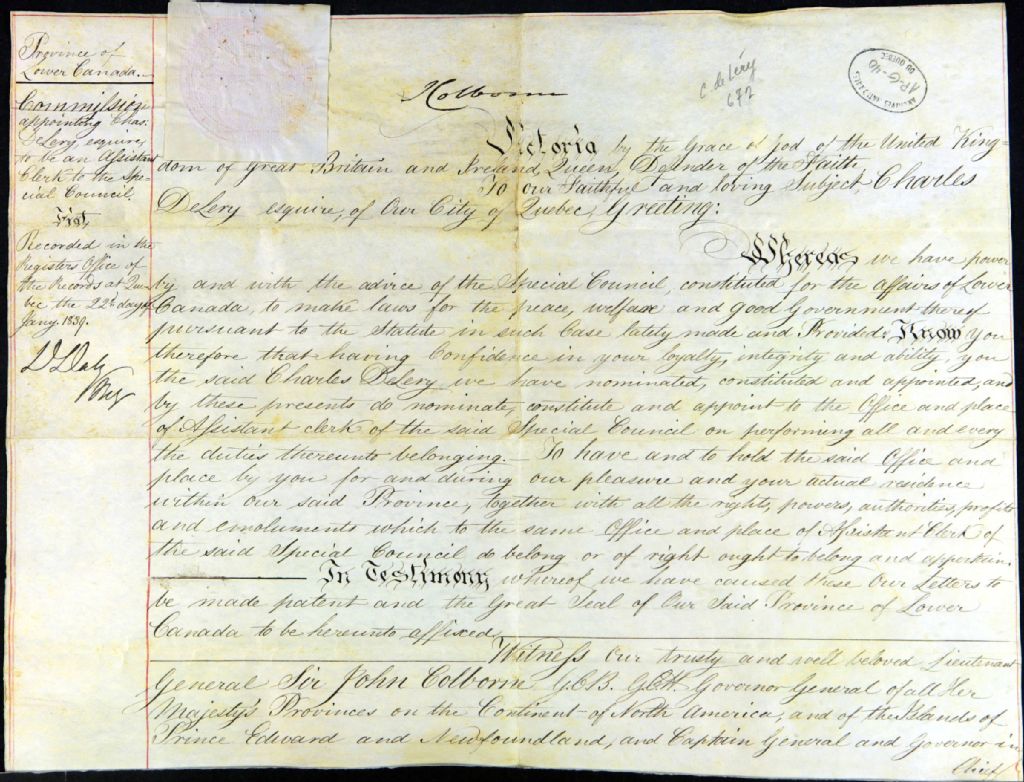 Province of
Lower Canada.
Commission
appointing Chas.
DeLery, esquire,
to be an Assistant
Clerk to the Spe-
cial Council.
Fiat,
Recorded in the
Registers Office of
the Records at Que-
bec the 22d day of
Jany. 1839.
D Daly
Regr
J Colborne
C de Lery
672
ARCHIVES JUDICIAIRES
AP-G-40
DU QUEBEC
Victoria by the Grace of God of the United King-
dom of Great Britain and Ireland, Queen, Defender of the Faith.
To our Faithful and loving Subject Charles
DeLery esquire, of Our City of Quebec, Greeting:
Whereas we have power
by and with the advice of the Special Council, constituted for the affairs of Lower
Canada, to make laws for the peace, welfare and good Government thereof
pursuant to the Statute in such Case lately made and Provided; Know You
therefore that having Confidence in your loyalty, integrity and ability, you
the said Charles DeLery we have nominated, constituted and appointed, and
by these presents do nominate, constitute and appoint to the Office and place
of Assistant clerk of the said Special Council on performing all and every
the duties thereunto belonging. To have and to hold the said Office and
place by you for and during our pleasure and your actual residence
within Our said Province, together with all the rights, powers, authorities, profits
and emoluments which to the same Office and place of Assistant Clerk of
the said Special Council do belong or of right ought to belong and appertain.
In Testimony whereof, we have caused these Our Letters to
be made patent and the Great Seal of Our Said Province of Lower
Canada to be hereunto affixed.
Witness Our trusty and well beloved Lieutenant
General Sir John Colborne G.C.B. G.C.H. Governor General of all Her
Majesty's Provinces on the Continent of North America, and of the Islands of
Prince Edward and Newfoundland, and Captain General and Governor in
Chief